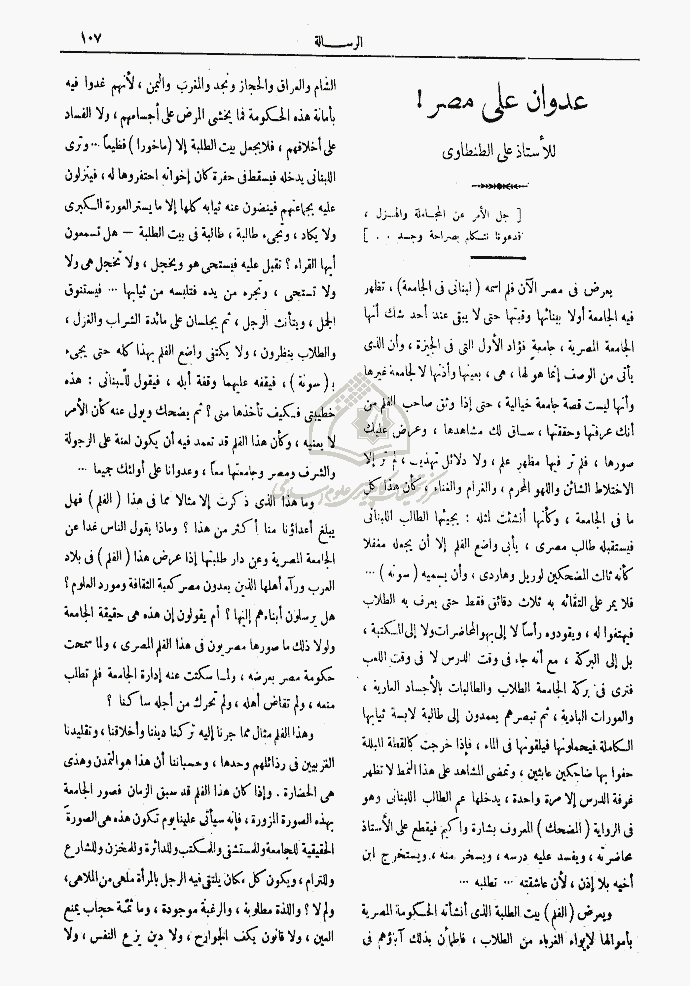 الرسالة
١٠٧
عدوان على مصر !
للأستاذ على الطنطاوى
[ جل الأمر عن المجاملة والهزل ،
فدعونا نتكلم بصراحة وجد . . ]
يعرض فى مصر الآن فلم اسمه ( لبنانى فى الجامعة ) ، تظهر
فيه الجامعة أولا ببنائها وقبتها حتى لا يبقى عند أحد شك أنها
الجامعة المصرية ، جامعة فؤاد الأول التى فى الجيزة ، وأن الذى
يأتى من الوصف إنما هو لها ، هى ، بعينها وأذنها لا لجامعة غيرها
وأنها ليست قصة جامعة خيالية ، حتى إذا وثق صاحب الفلم من
أنك عرفتها وحققتها ، ساق لك مشاهدها ، وعرض عليك
صورها ، فلم تر فيها مظهر علم ، ولا دلائل تهذيب ، لم تر إلا
الاختلاط الشائن واللهو المحرم ، والغرام والغناء ، كأن هذا كل
ما فى الجامعة ، وكأنها أنشئت لمثله : يجيئها الطالب اللبنانى
فيستقبله طالب مصرى ، يأبى واضع الفلم إلا أن يجعله مغفلا
كأنه ثالث المضحكين لوريل وهاردى ، وأن يسميه ( سونه ) ...
فلا يمر على التقائه به ثلاث دقائق فقط حتى يعرف به الطلاب
فيهتفوا له ، ويقودوه رأساً لا إلى بهو المحاضرات ولا إلى المكتبة ،
بل إلى البركة ، مع أنه جاء فى وقت الدرس لا فى وقت اللعب
فترى فى بركة الجامعة الطلاب والطالبات بالأجساد العارية ،
والعورات البادية ، ثم تبصرهم يعمدون إلى طالبة لابسة ثيابها
الكاملة فيحملونها فيلقونها فى الماء ، فإذا خرجت كالقطة المبللة
حفوا بها ضاحكين عابثين ، وتمضى المشاهد على هذا النمط لا تظهر
غرفة الدرس إلا مرة واحدة ، يدخلها عم الطالب اللبنانى وهو
فى الرواية ( المضحك ) المعروف بشارة واكيم فيقطع على الأستاذ
محاضرته ، ويفسد عليه درسه ، ويسخر منه ، ويستخرج ابن
أخيه بلا إذن ، لأن عاشقته ... تطلبه ...
ويعرض ( الفلم ) بيت الطلبة الذى أنشأته الحكومة المصرية
بأموالها لإيواء الغرباء من الطلاب ، فاطمأن بذلك آباؤهم فى
الشام والعراق والحجاز ونجد والمغرب واليمن ، لأنهم غدوا فيه
بأمانة هذه الحكومة فما يخشى المرض على أجسامهم ، ولا الفساد
على أخلاقهم ، فلا يجعل بيت الطلبة إلا ( ماخورا ) فظيعاً ... وترى
اللبنانى يدخله فيسقط فى حفرة كان إخوانه احتفروها له ، فينزلون
عليه بجماعتهم فينضون عنه ثيابه كلها إلا ما يستر العورة الكبرى
ولا يكاد ، وتجىء طالبة ، طالبة فى بيت الطلبة – هل تسمعون
أيها القراء ؟ تقبل عليه فيستحى هو ويخجل ، ولا تخجل هى ولا
ولا تستحى ، وتجره من يده فتلبسه من ثيابها ... فيستنوق
الجمل ، ويتأنث الرجل ، ثم يجلسان على مائدة الشراب والغزل ،
والطلاب ينظرون ، ولا يكتفى واضع الفلم بهذا كله حتى يجىء
بـ ( سونة ) ، فيقفه عليهما وقفة أبله ، فيقول للبنانى : هذه
خطيبتى فكيف تأخذها منى ؟ ثم يضحك ويولى عنه كأن الأمر
لا يعنيه ، وكأن هذا الفلم قد تعمد فيه أن يكون لعنة على الرجولة
والشرف ومصر وجامعتها معاً ، وعدوانا على أولئك جميعا ...
وما هذا الذى ذكرت إلا مثالا مما فى هذا ( الفلم ) فهل
يبلغ أعداؤنا منا أكثر من هذا ؟ وماذا يقول الناس غدا عن
الجامعة المصرية وعن دار طلبتها إذا عرض هذا ( الفلم ) فى بلاد
العرب ورآه أهلها الذين يعدون مصر كعبة الثقافة ومورد العلوم ؟
هل يرسلون أبناءهم إليها ؟ أم يقولون إن هذه هى حقيقة الجامعة
ولولا ذلك ما صورها مصريون فى هذا الفلم المصرى ، ولما سمحت
حكومة مصر بعرضه ، ولما سكتت عنه إدارة الجامعة فلم تطلب
منعه ، ولم تقاض أهله ، ولم تحرك من أجله ساكنا ؟
وهذا الفلم مثال مما جرنا إليه تركنا ديننا وأخلاقنا ، وتقليدنا
الغربيين فى رذائلهم وحدها ، وحسباننا أن هذا هو التمدن وهذى
هى الحضارة . وإذا كان هذا الفلم قد سبق الزمان فصور الجامعة
بهذه الصورة المزورة ، فإنه سيأتى علينا يوم تكون هذه هى الصورة
الحقيقية للجامعة وللمستشفى وللمكتب وللدائرة وللمخزن وللشارع
وللترام ، ويكون كل مكان يلتقى فيه الرجل بالمرأة ملهى من الملاهى،
ولم لا ؟ واللذة مطلوبة ، والرغبة موجودة ، وما ثمة حجاب يمنع
العين ، ولا قانون يكف الجوارح ، ولا دين يزع النفس ، ولا